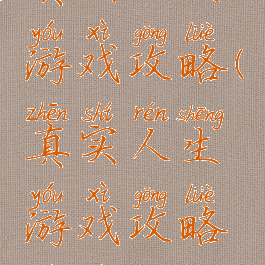 yóu xì gōng lüè
游戏攻略(
zhēn shí rén shēng
真实人生
yóu xì gōng lüè
游戏攻略